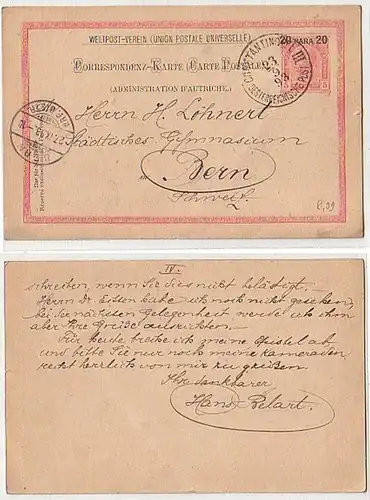 WELTPOST-VEREIN (UNION POSTALE UNIVERSELLE)
20 PARA 20
CORRESPONDENZ-KARTE CARTE POSTALE
(ADMINISTRATION D'AUTRICHE.)
CONSTANTINOPEL III
OESTERREICHISCHE POST
23
5
Herrn H. Löhnert
Städtisches Gymnasium
Bern
Schweiz.
BRIEFTRÄGER
BERN
IV.
schreiben, wenn Sie dies nicht belästigt.
Herrn Dr. habe ich noch nicht gesehen,
bei der nächsten Gelegenheit werde ich ihm
aber Ihre Grüße ausrichten.
Für heute breche ich meine Epistel ab
und bitte Sie nur noch meine Kameraden
recht herzlich von mir zu grüßen.
Ihr dankbarer
Hans Relart.